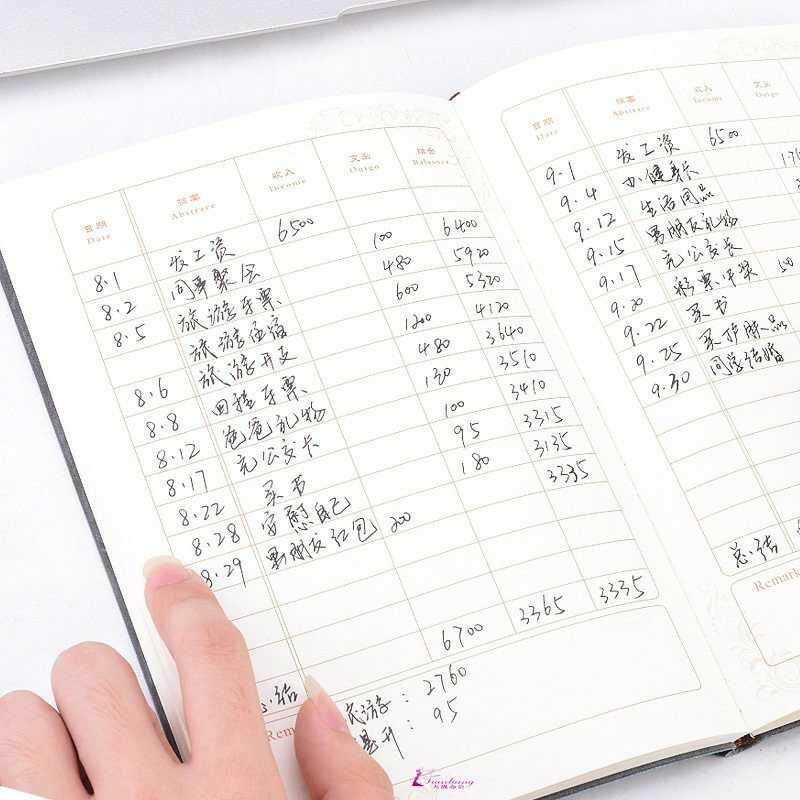 日期 摘要 收入 支出 结余
Date Abstrace Income Outgo Balance
8.1 发工资 6500
8.2 同事聚会 100 6400
8.5 旅游车票 480 5920
旅游住宿 600 5320
旅游开支 1200 4120
8.6 回程车票 480 3640
8.8 爸爸礼物 130 3510
8.12 充公交卡 100 3410
8.17 买书 95 3315
8.22 安慰自己 180 3135
8.28 男朋友红包 200 3335
8.29
总结 6700 3365 3335
Rem
旅游: 2760
提升: 95
日期 摘要 收入 支出
Date Abstrace Income Outgo
9.1 发工资 6500
9.4 办健身卡
9.12 生活用品
9.15 男朋友礼物
9.17 充公交卡
9.20 彩票中奖 50
9.22 买书
9.25 买护肤品
9.30 同学结婚
总结
Remark